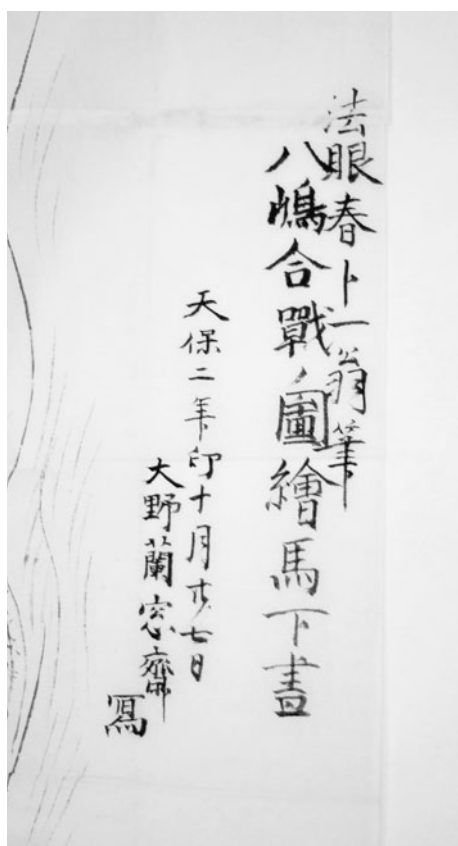 法眼春卜一翁筆
八嶋合戰ノ圖繪馬下畫
天保二年卯十月廿七日
大野蘭窓齋
寫